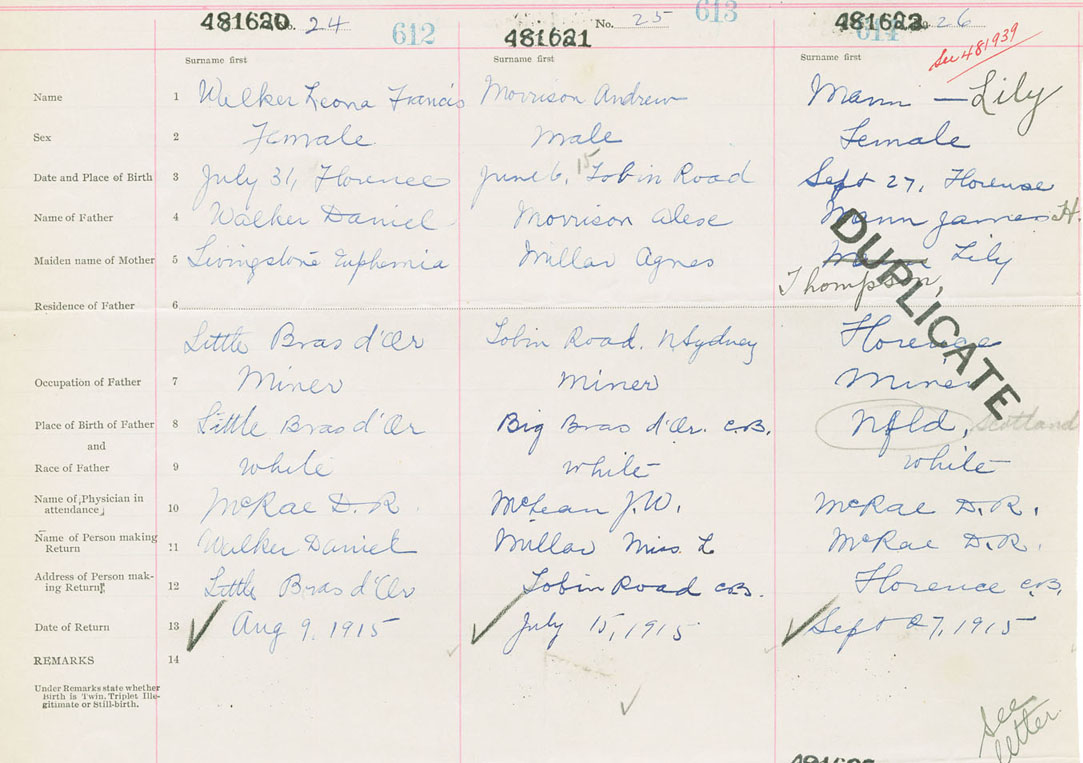 481620 No. 24 612
481621 No. 25 613
481622 No. 26 614
See 481939
Surname first Surname first Surname first
Name 1 Walker Leona Francis Morrison Andrew Mann — Lily
Sex 2 Female Male Female
Date and Place of Birth 3 July 31, Florence June 6, 15 Tobin Road Sept 27, Florence
Name of Father 4 Walker Daniel Morrison Alexe Mann James H.
Maiden name of Mother 5 Livingstone Euphemia Millar Agnes Lily
Thompson,
Residence of Father 6
Little Bras d'Or Tobin Road. N Sydney Florence
Occupation of Father 7 Miner Miner Miner
Place of Birth of Father 8 Little Bras d'Or Big Bras d'Or. C.B. Nfld, Scotland
and
Race of Father 9 white white white
Name of Physician in
attendance 10 McRae D.R. McLean J.W. McRae D.R.
Name of Person making
Return 11 Walker Daniel Millar Miss L McRae D.R.
Address of Person mak-
ing Return 12 Little Bras d'Or Tobin Road C.B. Florence C.B.
Date of Return 13 Aug 9, 1915 July 15, 1915 Sept 27, 1915
REMARKS 14
Under Remarks state whether
Birth is Twin, Triplet Ille-
gitimate or Still-birth.
DUPLICATE
See
letter